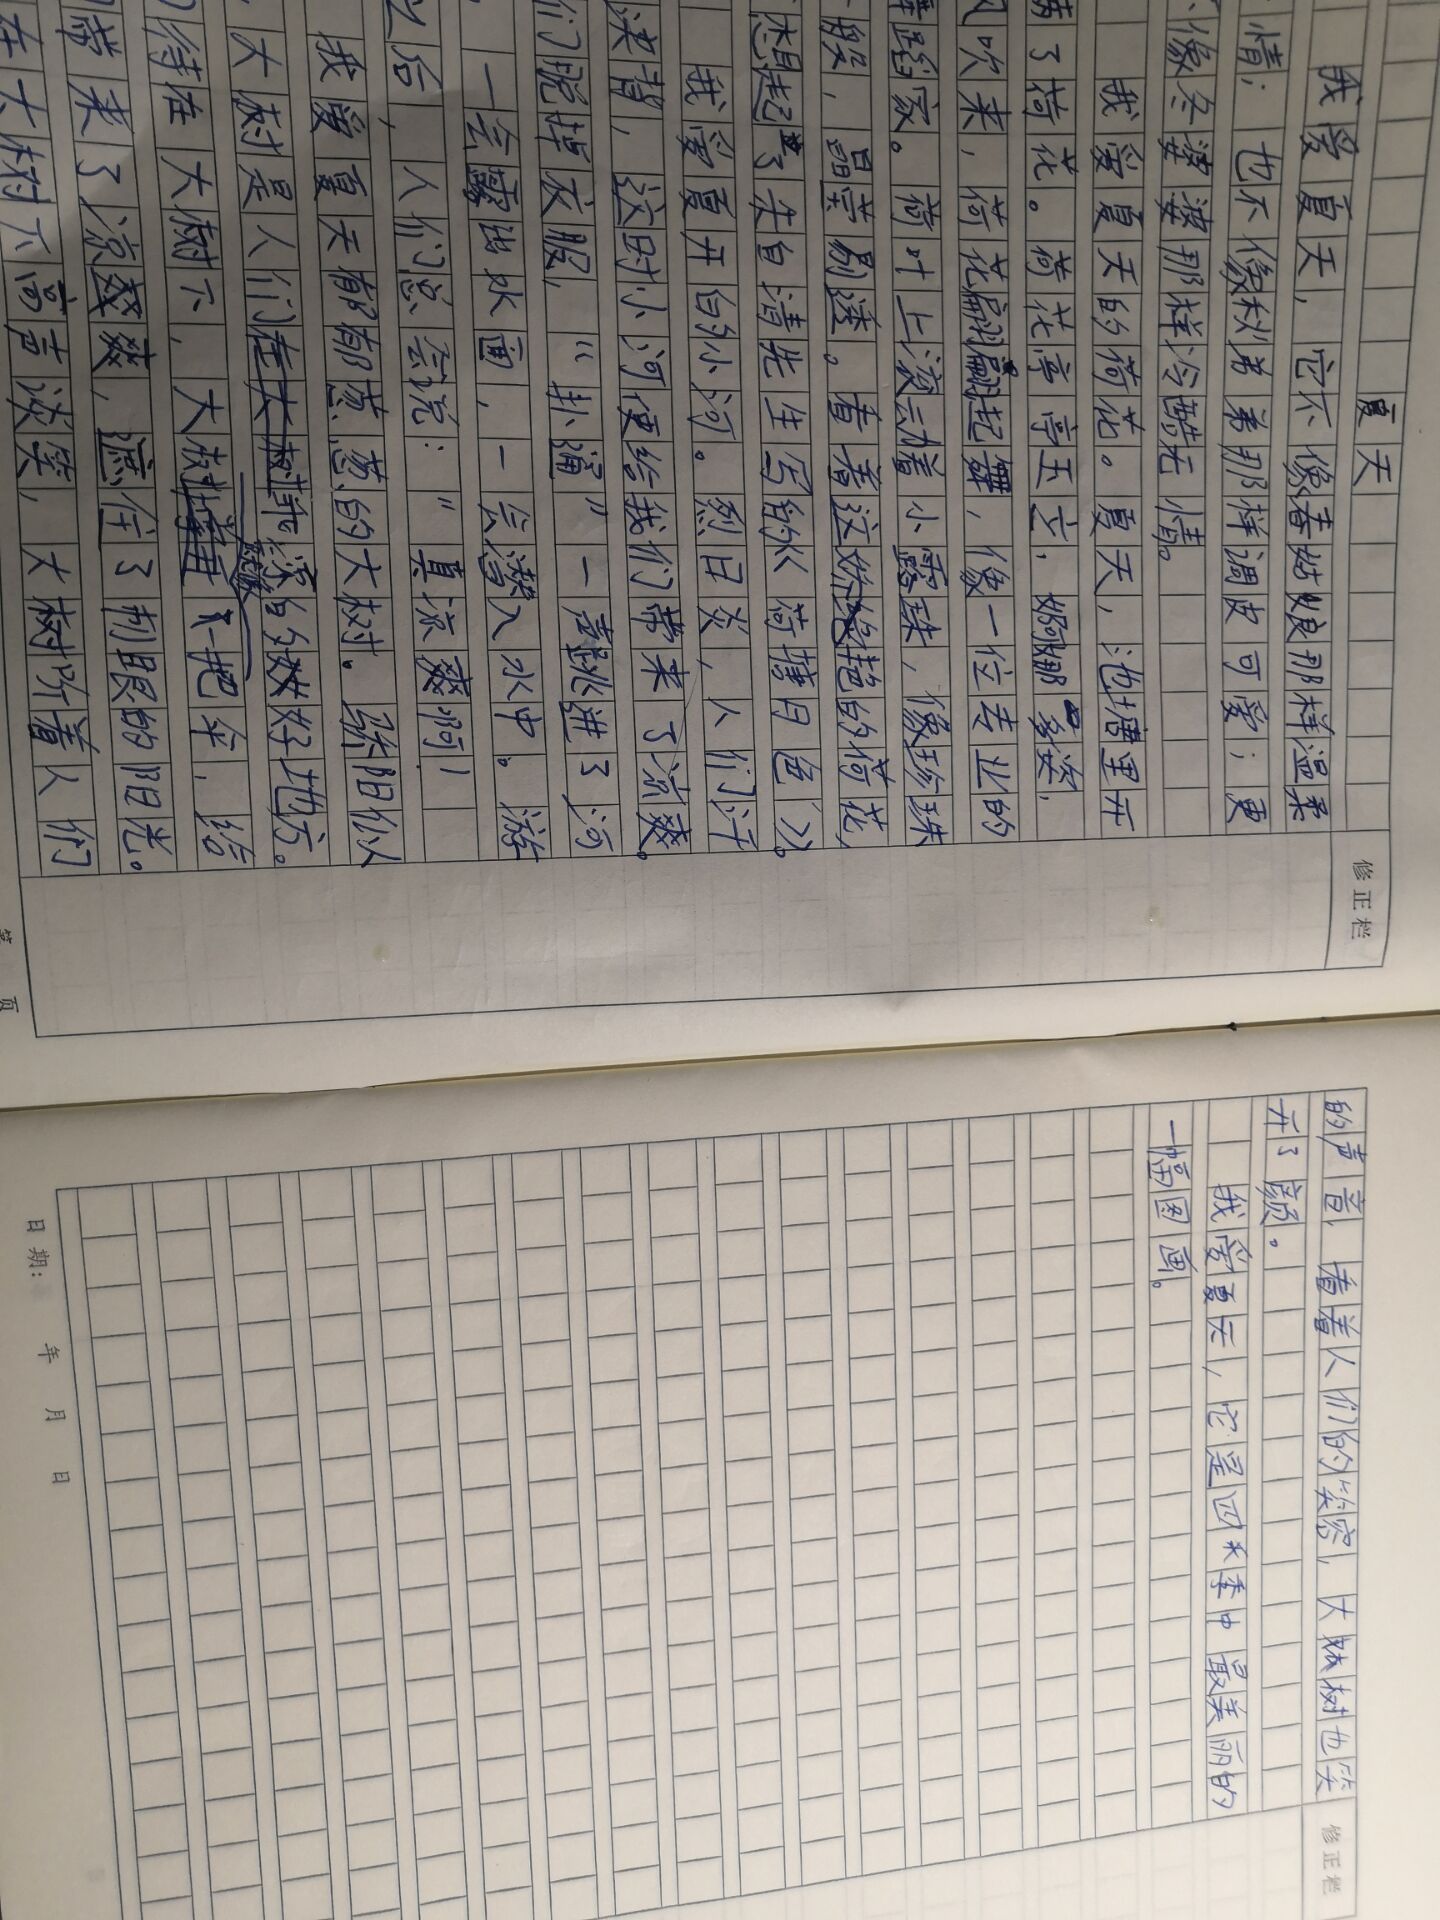 夏天
我爱夏天，它不像春姑娘那样温柔
情；也不像秋弟弟那样调皮可爱；更
像冬婆婆那样冷酷无情。
我爱夏天的荷花。夏天，池塘里开
满了荷花。荷花亭亭玉立，婀娜多姿，
风吹来，荷花翩翩起舞，像一位专业的
舞蹈家。荷叶上滚动着小露珠，像珍珠
般，晶莹剔透。看着这娇艳的荷花，
想起了朱自清先生写的《荷塘月色》。
我爱夏天的小河。烈日炎，人们汗
浃背，这时小河便给我们带来了凉爽。
们脱掉衣服，“扑通”一声跳进了河
一会露出水面，一会潜入水中。游
之后，人们总会说：“真凉爽啊！
我爱夏天郁郁葱葱的大树。骄阳似
大树是人们乘凉的好地方。
待在大树下，大树像一把伞，给
带来了凉爽，遮住了刺眼的阳光。
在大树下高声谈笑，大树听着人们
的声音，看着人们的笑容，大树也笑
开了颜。
我爱夏天，它是四季中最美丽的
一幅图画。
修正栏
第 页
修正栏
日期： 年 月 日